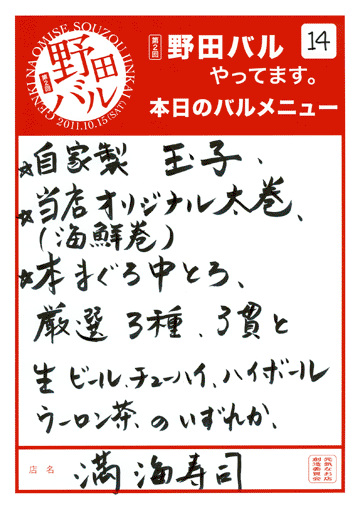 GENKI NA OMISE SOUZOU IINKAI
第2回
野田
バル
2011.10.15(SAT)
第2回 野田バル 14
やってます。
本日のバルメニュー
☆自家製 玉子、
☆当店オリジナル太巻、
(海鮮巻)
☆本まぐろ中とろ、
厳選3種、3貫と
生ビール、チューハイ、ハイボール
ウーロン茶、のいずれか、
店名 満海寿司
元気なお店
創造委員会